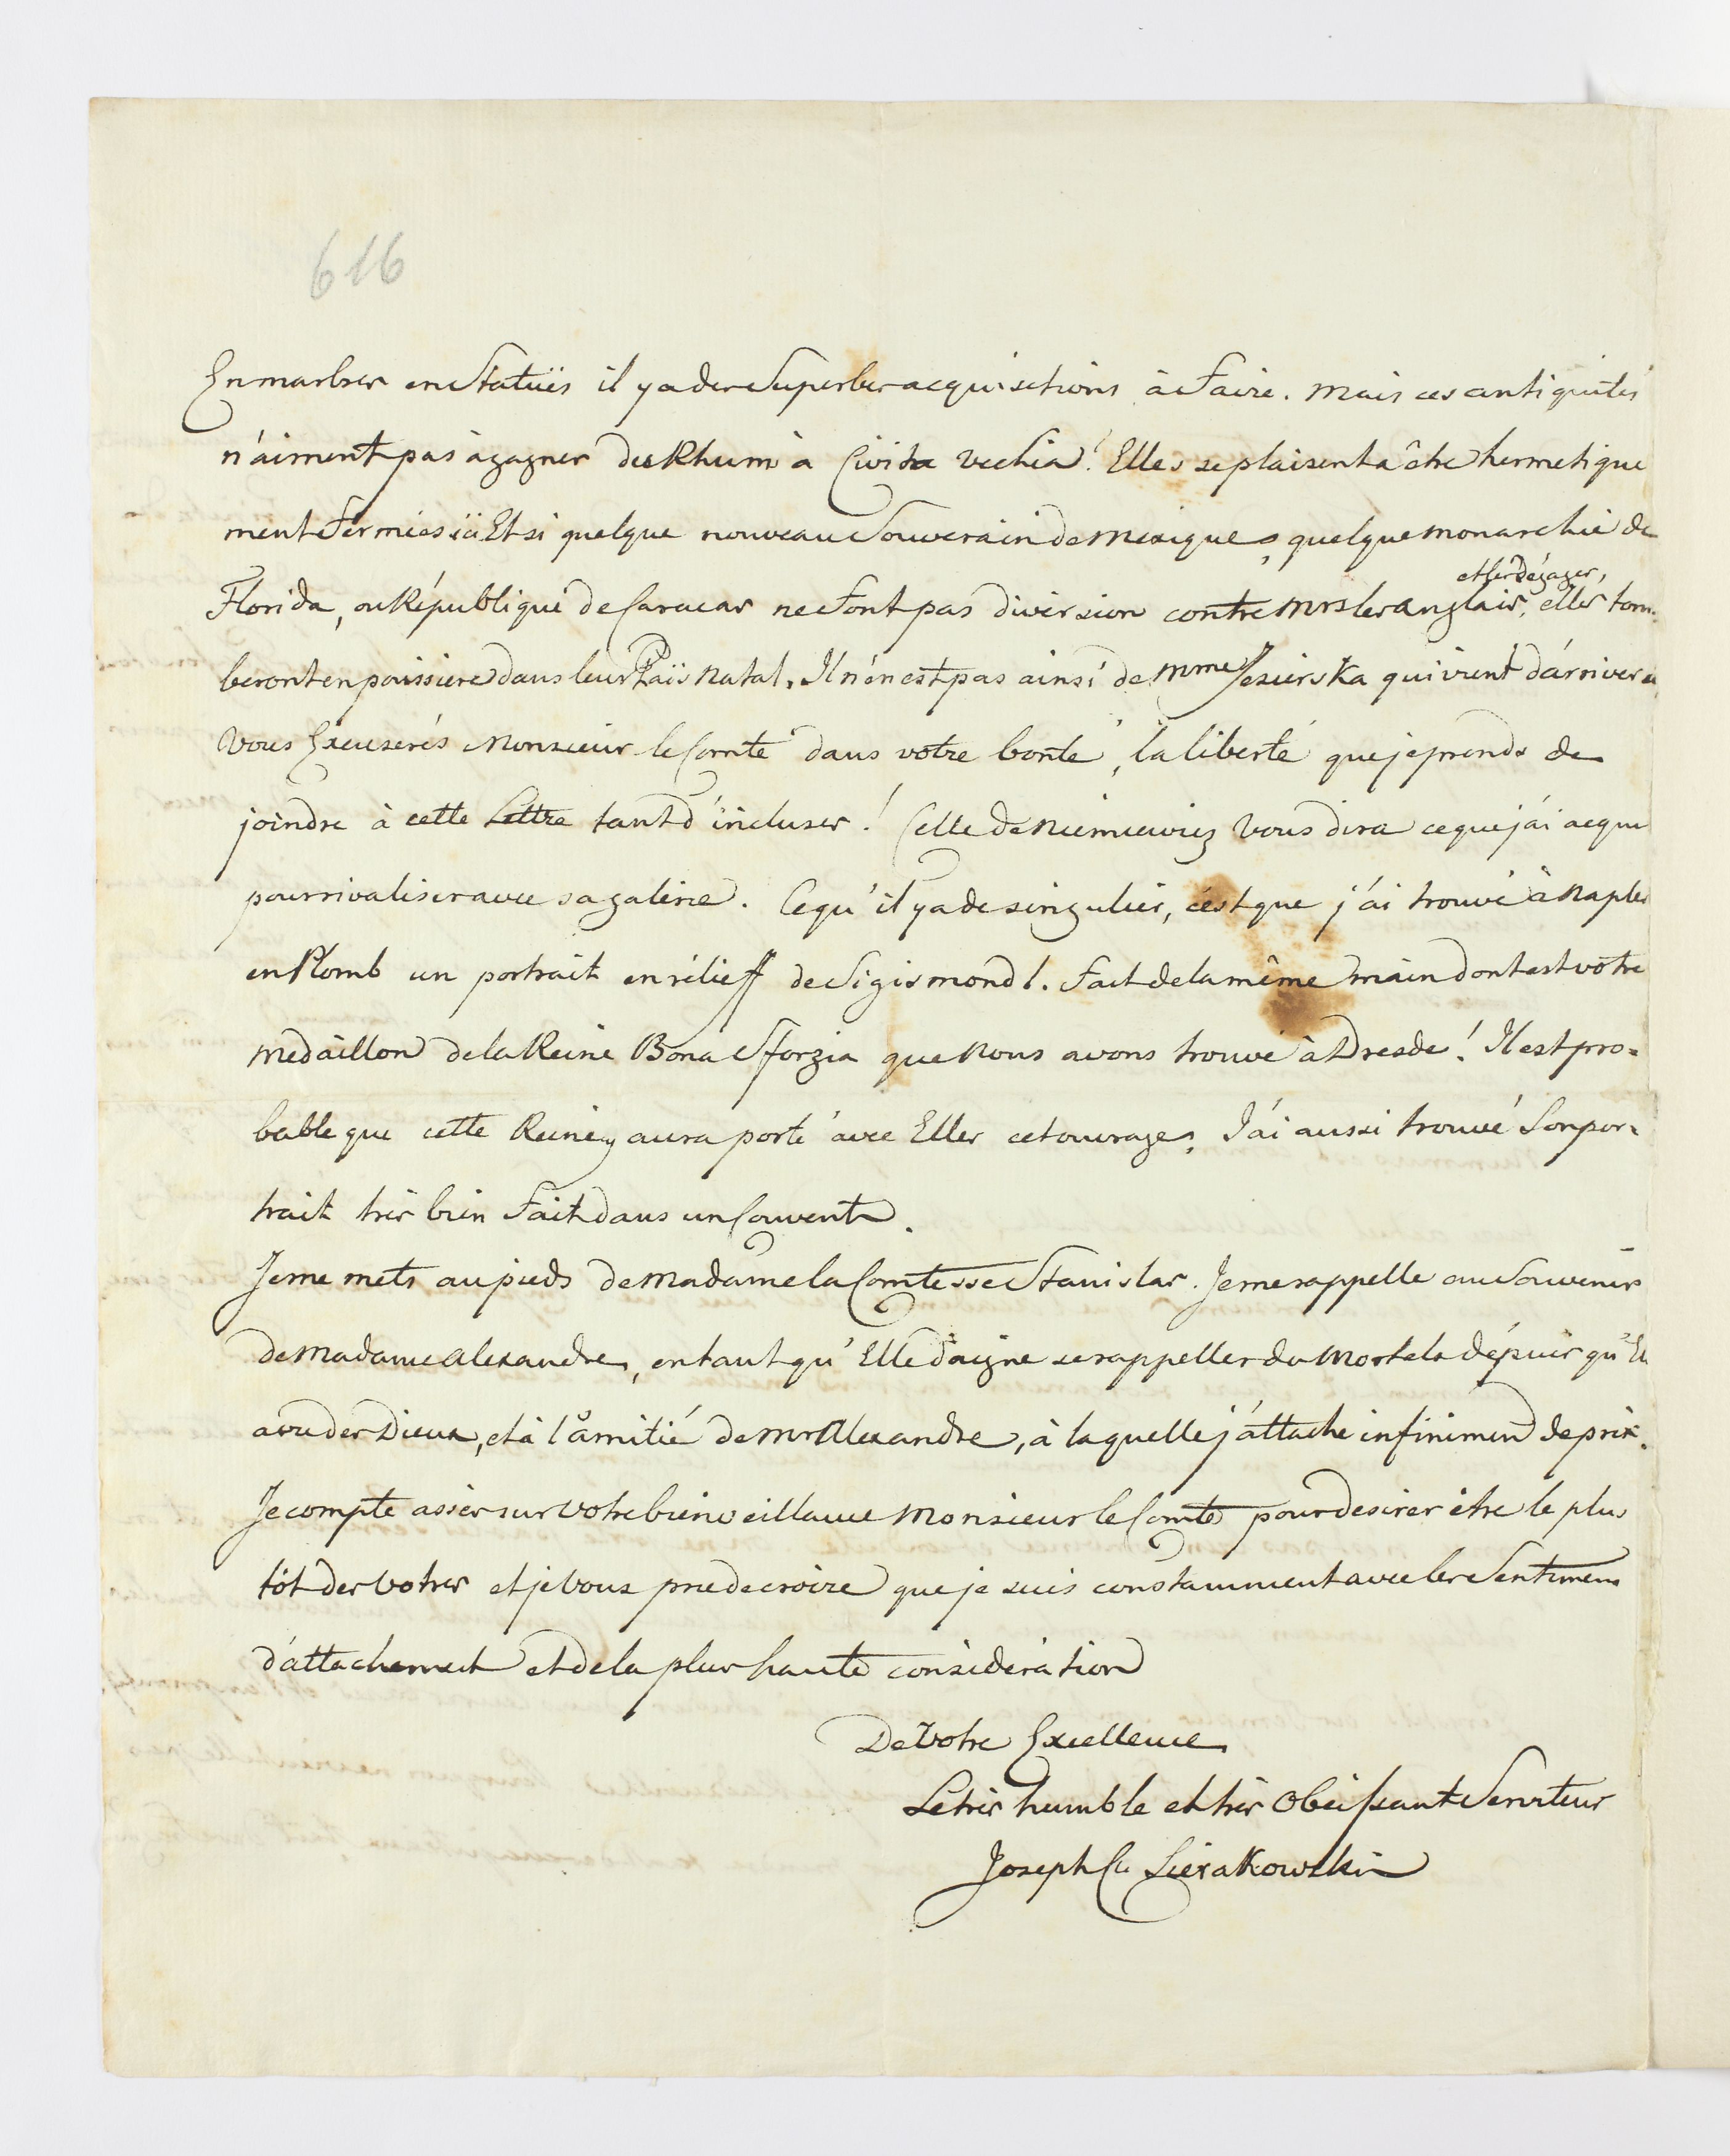 616
En marbres en Statuës il y a des Superbes acquisitions à faire. Mais ces antiquités
n'aiment pas à gagner de Rhum à Civita Vechia! Elles se plaisent à être hermetique
ment fermées ici Et si quelque nouveau Souverain de Mexique, quelque monarchie de
Florida, ou République de Caracas ne font pas diversion contre Mrs les Anglais, et les dégager, elles tom-
beront en poussiere dans leur Païs natal. Il n'en est pas ainsi de Mme Jezierska qui vient d'arriver
Vous Excuserés Monsieur le Comte dans votre bonté, la liberté que je prends de
joindre à cette Lettre tant d'incluses! Celle de Niemcewicz Vous dira ce que j'ai acquu
pour rivaliser avec sa galerie. Ce qu'il y a de singulier, c'est que j'ai trouvé à Naples
en Plomb un portrait en relieff de Sigismond I. fait de la même main dont est votre
medaillon de la Reine Bona Sforzia que nous avons trouvé à Dresde! Il est pro=
bable que cette Reine y aura porté avec Elles cet ouvrage. J'ai aussi trouvé Son por=
trait très bien fait dans un Couvent.
Je me mets au pieds de Madame la Comtesse Stanislas. Je me rappelle au Souvenir
de Madame Alexandre, en tant qu'Elle daigne se rappeller du Mortels dépuis qu'El
a vu des Dieux, et à l'amitié de Mr Alexandre, à laquelle j'attache infinimend de prix.
Je compte assés sur Votre bienveillance Monsieur le Comte pour desirer être le plus
tôt des Votres et je Vous prie de croire que je suis constamment avec les Sentimens
d'attachement et de la plus haute considération
De Votre Excellence
Le très humble et très Obéissant Serviteur
Joseph Cte Sierakowski